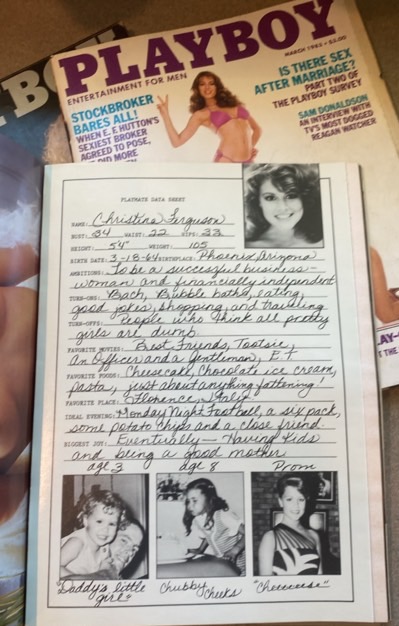 PLAYBOY
ENTERTAINMENT FOR MEN
MARCH 1983 • $3.00
STOCKBROKER
BARES ALL!
WHEN E. F. HUTTON'S
SEXIEST BROKER
AGREED TO POSE,
DID MORE
IS THERE SEX
AFTER MARRIAGE?
PART TWO OF
THE PLAYBOY SURVEY
SAM DONALDSON
AN INTERVIEW WITH
TV'S MOST DOGGED
REAGAN WATCHER
PLAYMATE DATA SHEET
NAME: Christina Ferguson
BUST: 34 WAIST: 22 HIPS: 33
HEIGHT: 5'4" WEIGHT: 105
BIRTH DATE: 3-18-64 BIRTHPLACE: Phoenix, Arizona
AMBITIONS: To be a successful business-
woman and financially independent
TURN-ONS: Bach, Bubble baths, eating,
good jokes, shopping, and traveling
TURN-OFFS: People who think all pretty
girls are dumb.
FAVORITE MOVIES: Best Friends, Tootsie,
An Officer and a Gentleman, E.T.
FAVORITE FOODS: Cheesecake, Chocolate ice cream,
pasta, just about anything fattening!
FAVORITE PLACE: Florence, Italy
IDEAL EVENING: Monday Night Football, a six pack,
some potato chips and a close friend.
BIGGEST JOY: Eventually — Having kids
and being a good mother
age 3 age 8 Prom
"Daddy's little
girl"
Chubby
Cheeks
"Cheeeese"